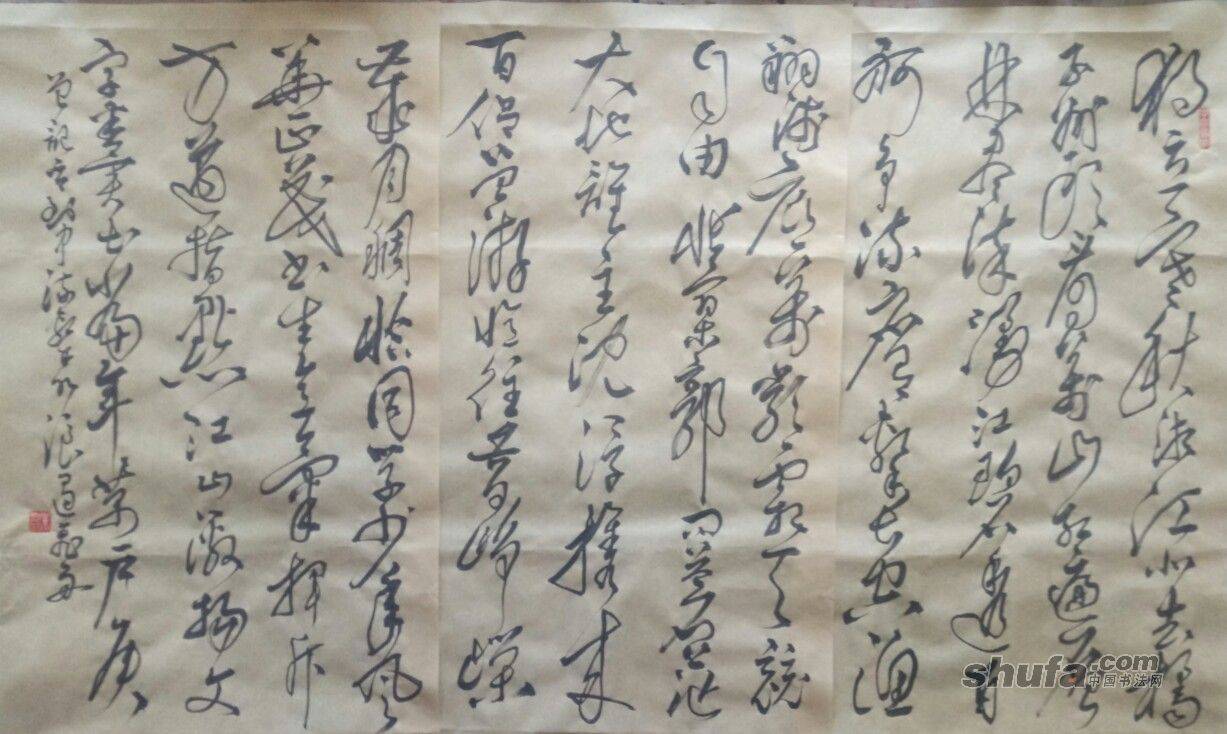 独立寒秋湘江北去橘
子洲头看万山红遍层
林尽染漫江碧透百
舸争流鹰击长空渔
翔浅底万类霜天竞
自由怅寥廓问苍茫
大地谁主沉浮携来
百侣曾游忆往昔峥嵘
岁月稠恰同学少年风
华正茂书生意气挥斥
方遒指点江山激扬文
字粪土当年万户侯
曾记否到中流击水浪遏飞舟
shufa.com
中国书法网